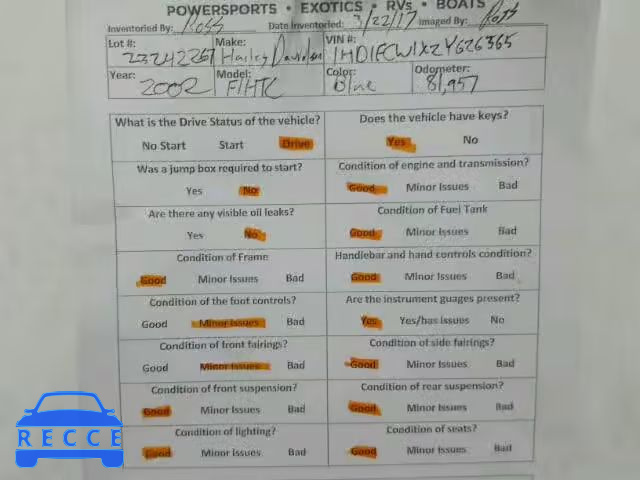 POWERSPORTS • EXOTICS • RVs • BOATS
Inventoried By: Ross Date Inventoried: 3/22/17 Imaged By: Ross
Lot #: Make: VIN #:
23242267 Harley Davidson 1HD1FCW1X2Y626365
Year: Model: Color: Odometer:
2002 FLHTC Blue 81,957
What is the Drive Status of the vehicle? Does the vehicle have keys?
No Start Start Drive Yes No
Was a jump box required to start? Condition of engine and transmission?
Yes No Good Minor Issues Bad
Are there any visible oil leaks? Condition of Fuel Tank
Yes No Good Minor Issues Bad
Condition of Frame Handlebar and hand controls condition?
Good Minor Issues Bad Good Minor Issues Bad
Condition of the foot controls? Are the instrument guages present?
Good Minor Issues Bad Yes Yes/has issues No
Condition of front fairings? Condition of side fairings?
Good Minor Issues Bad Good Minor Issues Bad
Condition of front suspension? Condition of rear suspension?
Good Minor Issues Bad Good Minor Issues Bad
Condition of lighting? Condition of seats?
Good Minor Issues Bad Good Minor Issues Bad
RECCE